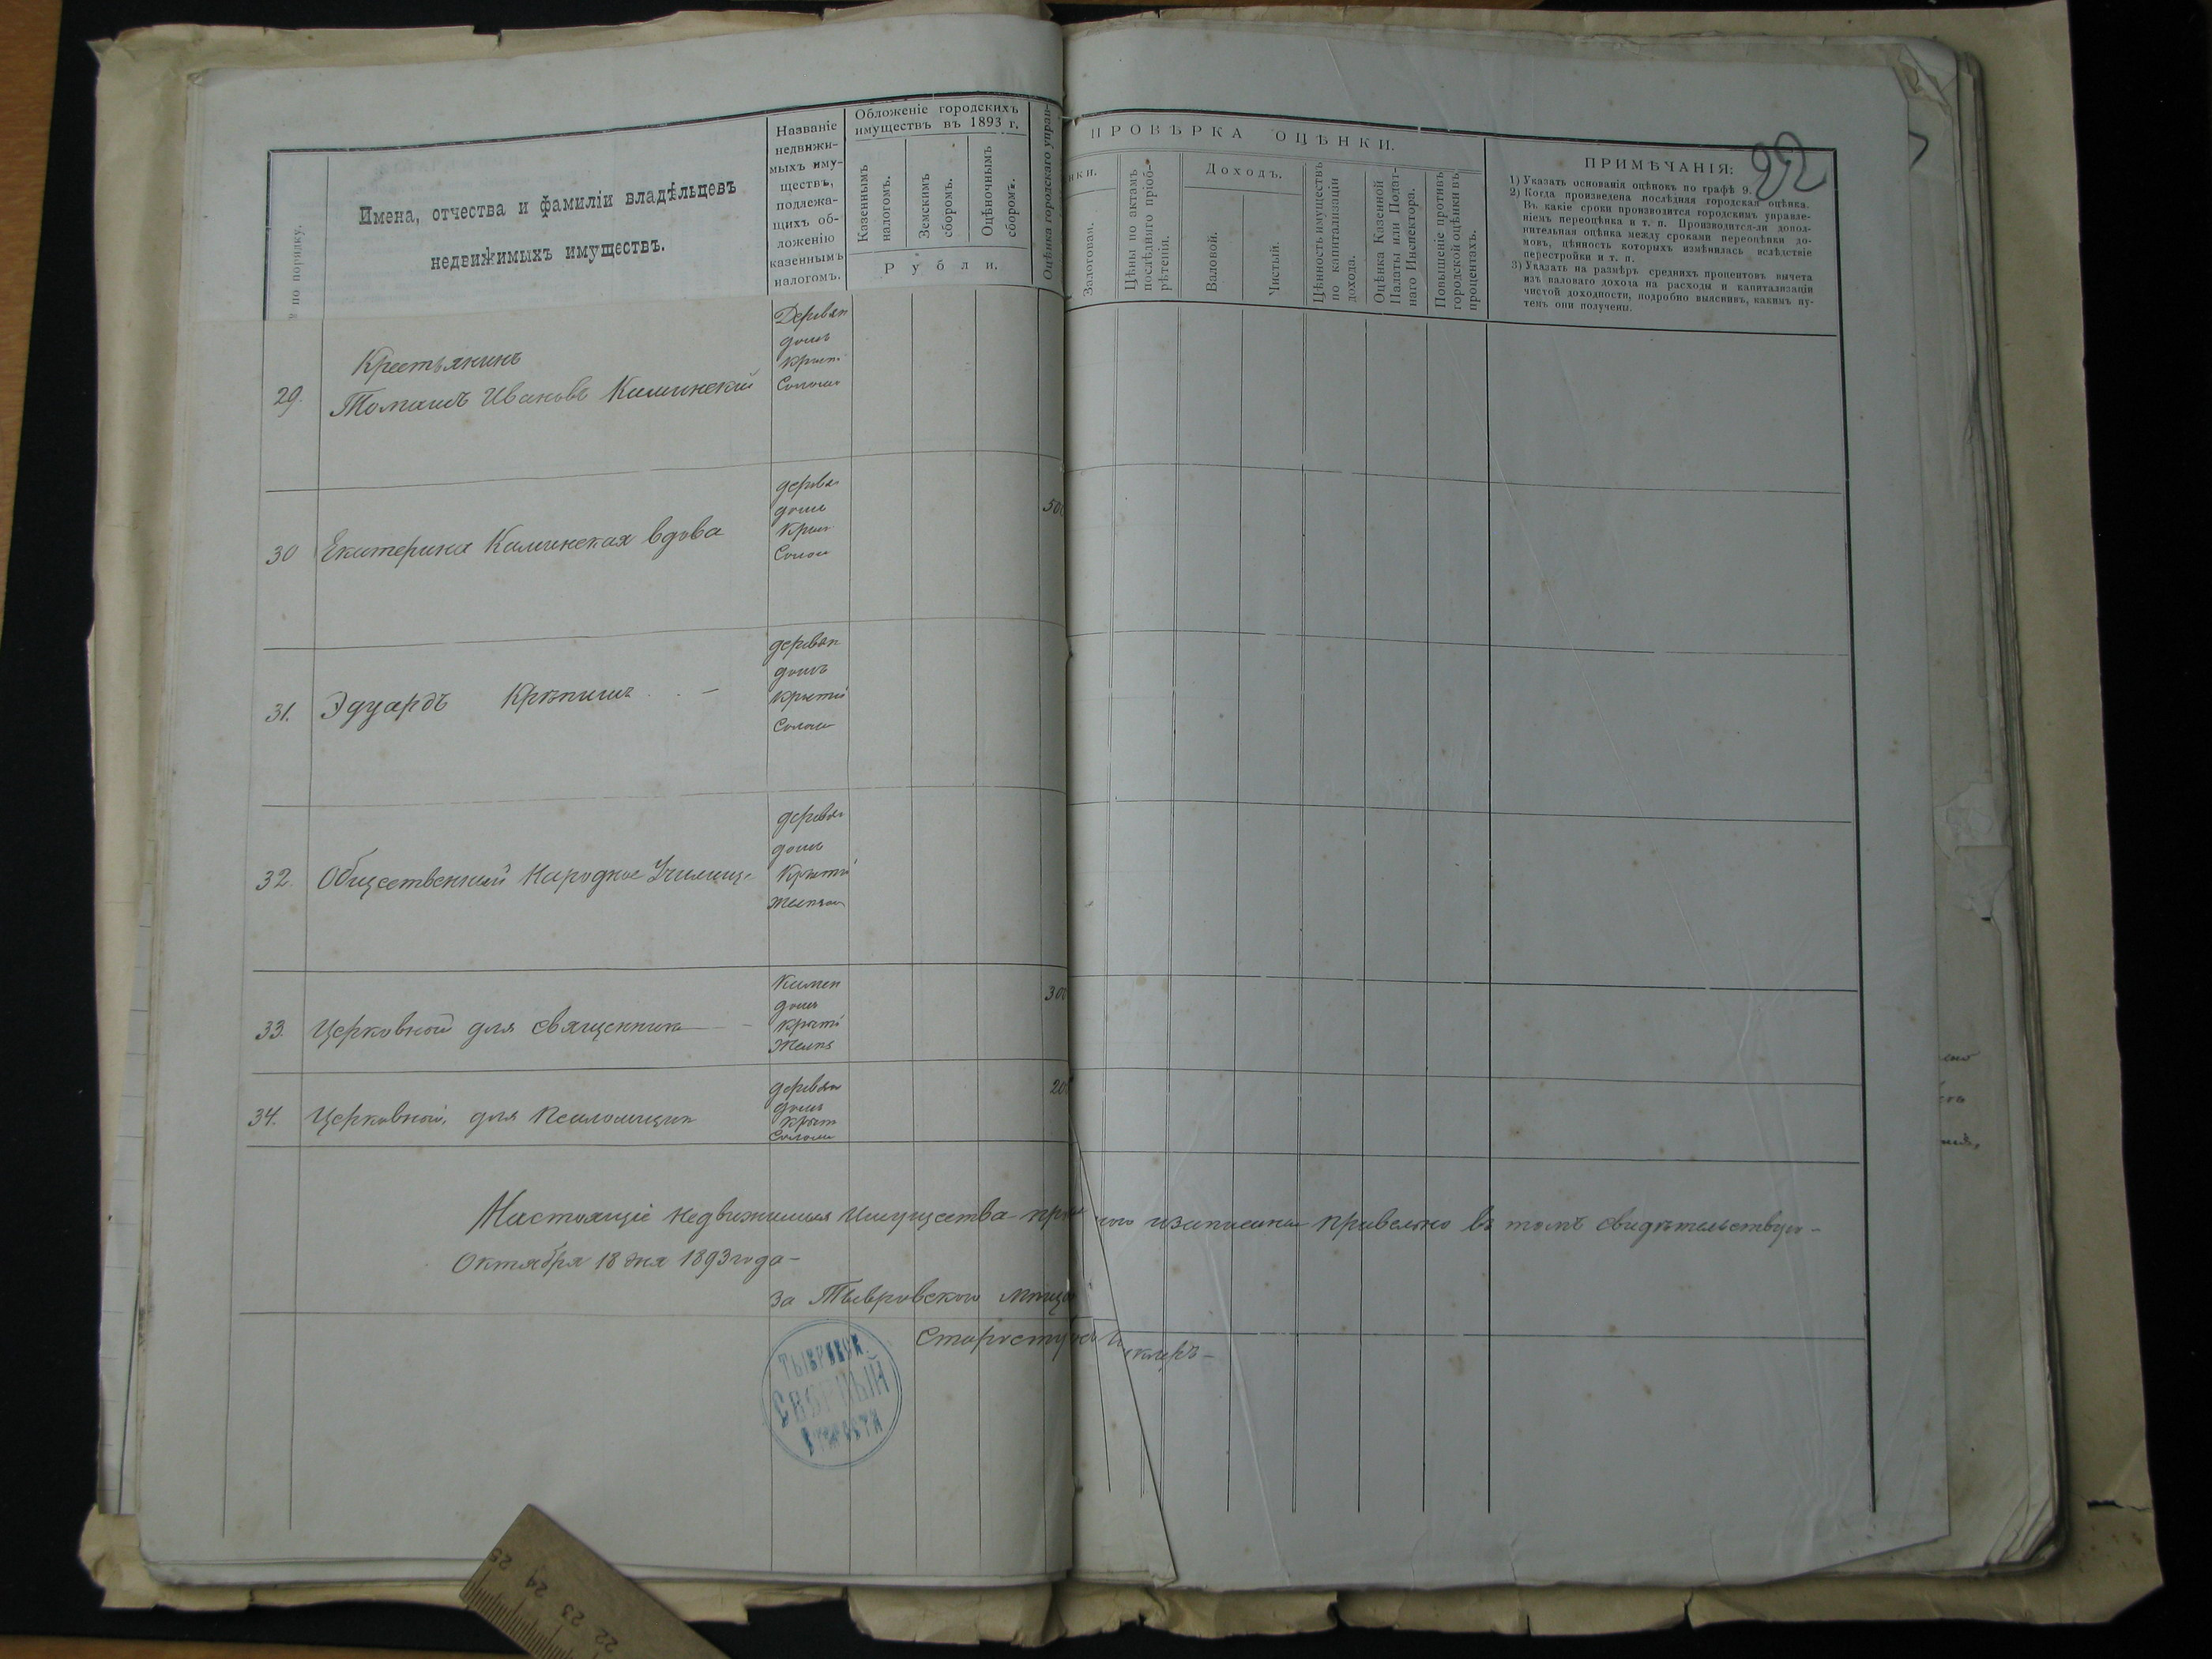 22
№ по порядку.
Имена, отчества и фамиліи владѣльцевъ
недвижимыхъ имуществъ.
Названіе
недвижи-
мыхъ иму-
ществъ,
подлежа-
щихъ об-
ложенію
казеннымъ
налогомъ.
Обложеніе городскихъ
имуществъ въ 1893 г.
Казеннымъ
налогомъ.
Земскимъ
сборомъ.
Оцѣночнымъ
сборомъ.
Рубли.
Оцѣнка городского управ-
ПРОВѢРКА ОЦѢНКИ.
нки.
Залоговая.
Цѣны по актамъ
послѣдняго пріоб-
рѣтенія.
Доходъ.
Валовой.
Чистый.
Цѣнность имуществъ
по капитализаціи
дохода.
Оцѣнка Казенной
Палаты или Подат-
наго Инспектора.
Повышеніе противъ
городской оцѣнки въ
процентахъ.
ПРИМѢЧАНІЯ:
1) Указать основанія оцѣнокъ по графѣ 9.
2) Когда произведена послѣдняя городская оцѣнка.
Въ какіе сроки производится городскимъ управле-
ніемъ переоцѣнка и т. п. Производится-ли допол-
нительная оцѣнка между сроками переоцѣнки до-
мовъ, цѣнность которыхъ измѣнилась вслѣдствіе
перестройки и т. п.
3) Указать на размѣръ среднихъ процентовъ вычета
изъ валоваго дохода на расходы и капитализаціи
чистой доходности, подробно выяснивъ, какимъ пу-
темъ они получены.
29.
Крестьянинъ
Томашъ Ивановъ Калинскій
Деревян
домъ
Крыт.
Солом
30
Екатерина Калинская вдова
дерева
домъ
Крыт
Солом
500
31.
Эдуардъ
деревян
домъ
Крытый
Солом
32.
Общественный Народное Училище
деревян
домъ
Крытый
желѣзом
33.
Церковный для священника
Камен
домъ
крыты
Желѣз
300
34.
Церковный, для Псаломщика
деревян
домъ
Крыт
Солом
200
Настоящіе недвижимыя Имущества правельно въ томъ свидѣтельствую-
Октября 18 дня 1893 года-
За Тывровского мѣщ
Старосту
ТЫВРОВСК.
СБОРНЫЙ
СТАРОСТИ
25 24 23 22